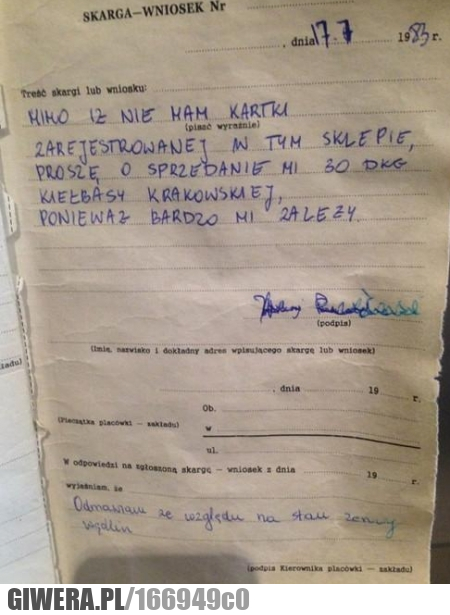 SKARGA—WNIOSEK Nr
, dnia 17.7 1983 r.
Treść skargi lub wniosku:
MIMO IŻ NIE MAM KARTKI
(pisać wyraźnie)
ZAREJESTROWANEJ W TYM SKLEPIE,
PROSZĘ O SPRZEDANIE MI 30 DKG
KIEŁBASY KRAKOWSKIEJ,
PONIEWAŻ BARDZO MI ZALEŻY.
(podpis)
(Imię, nazwisko i dokładny adres wpisującego skargę lub wniosek)
, dnia 19 r.
Ob.
(Pieczątka placówki — zakładu)
w
ul.
W odpowiedzi na zgłoszoną skargę — wniosek z dnia 19 r.
wyjaśniam, że
Odmawiam ze względu na stan
wędlin
(podpis Kierownika placówki — zakładu)
GIWERA.PL/166949c0